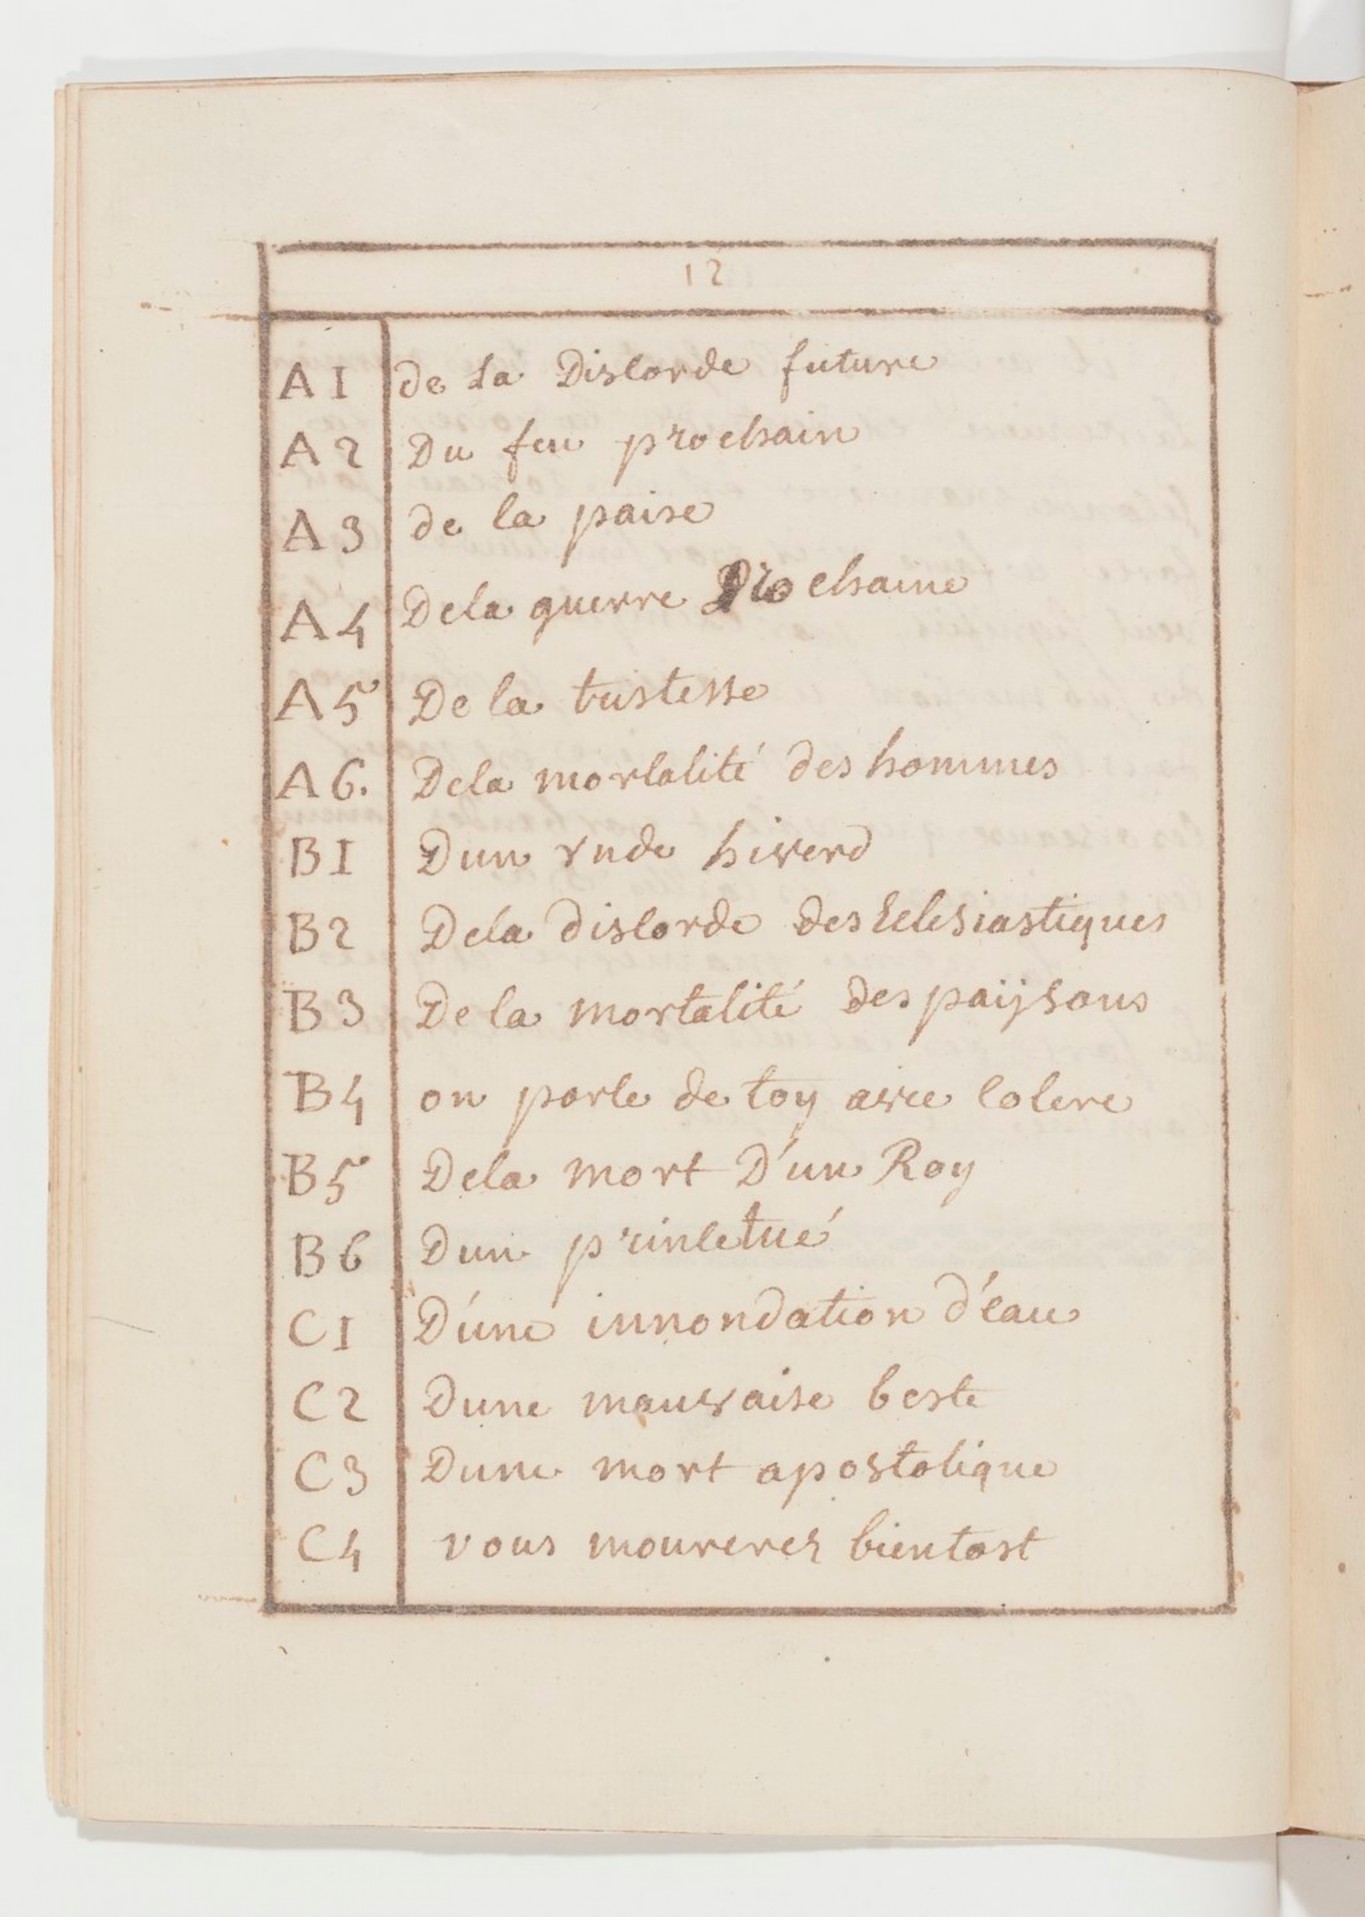 12
A1 de la Discorde future
A2 Du feu prochain
A3 de la paise
A4 De la guerre Prochaine
A5 De la tristesse
A6. De la mortalité des hommes
B1 Dun rude hiverd
B2 De la discorde des Eclesiastiques
B3 De la mortalité des paijsans
B4 on parle de toy avec colere
B5 De la mort D'un Roy
B6 Dun prince tué
C1 D'une innondation d'eau
C2 Dune mauvaise beste
C3 Dune mort apostolique
C4 vous mourerez bientost